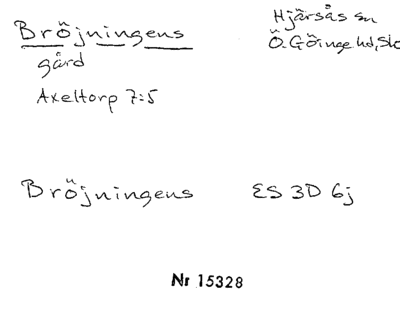 Bröjningens
gård
Axeltorp 7:5
Hjärsås sn
Ö. Göinge hd,
Bröjningens ES 3D 6j
Nr 15328